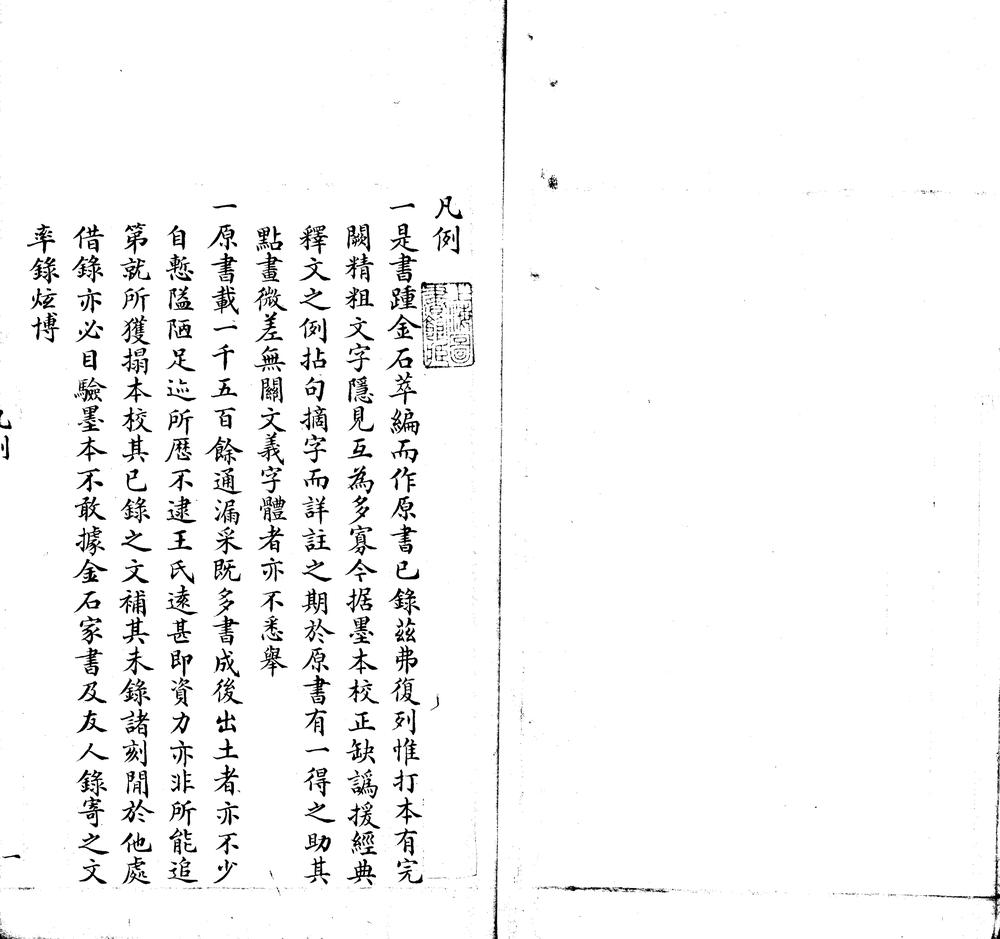 凡例
一是書踵金石萃編而作原書已錄茲弗復列惟打本有完
闕精粗文字隱見互為多寡今据墨本校正缺譌援經典
釋文之例拈句摘字而詳註之期於原書有一得之助其
點畫微差無關文義字體者亦不悉舉
一原書載一千五百餘通漏采既多書成後出土者亦不少
自慙隘陋足迹所歷不逮王氏遠甚即資力亦非所能追
第就所獲搨本校其已錄之文補其未錄諸刻閒於他處
借錄亦必目驗墨本不敢據金石家書及友人錄寄之文
率錄炫博
凡例
一